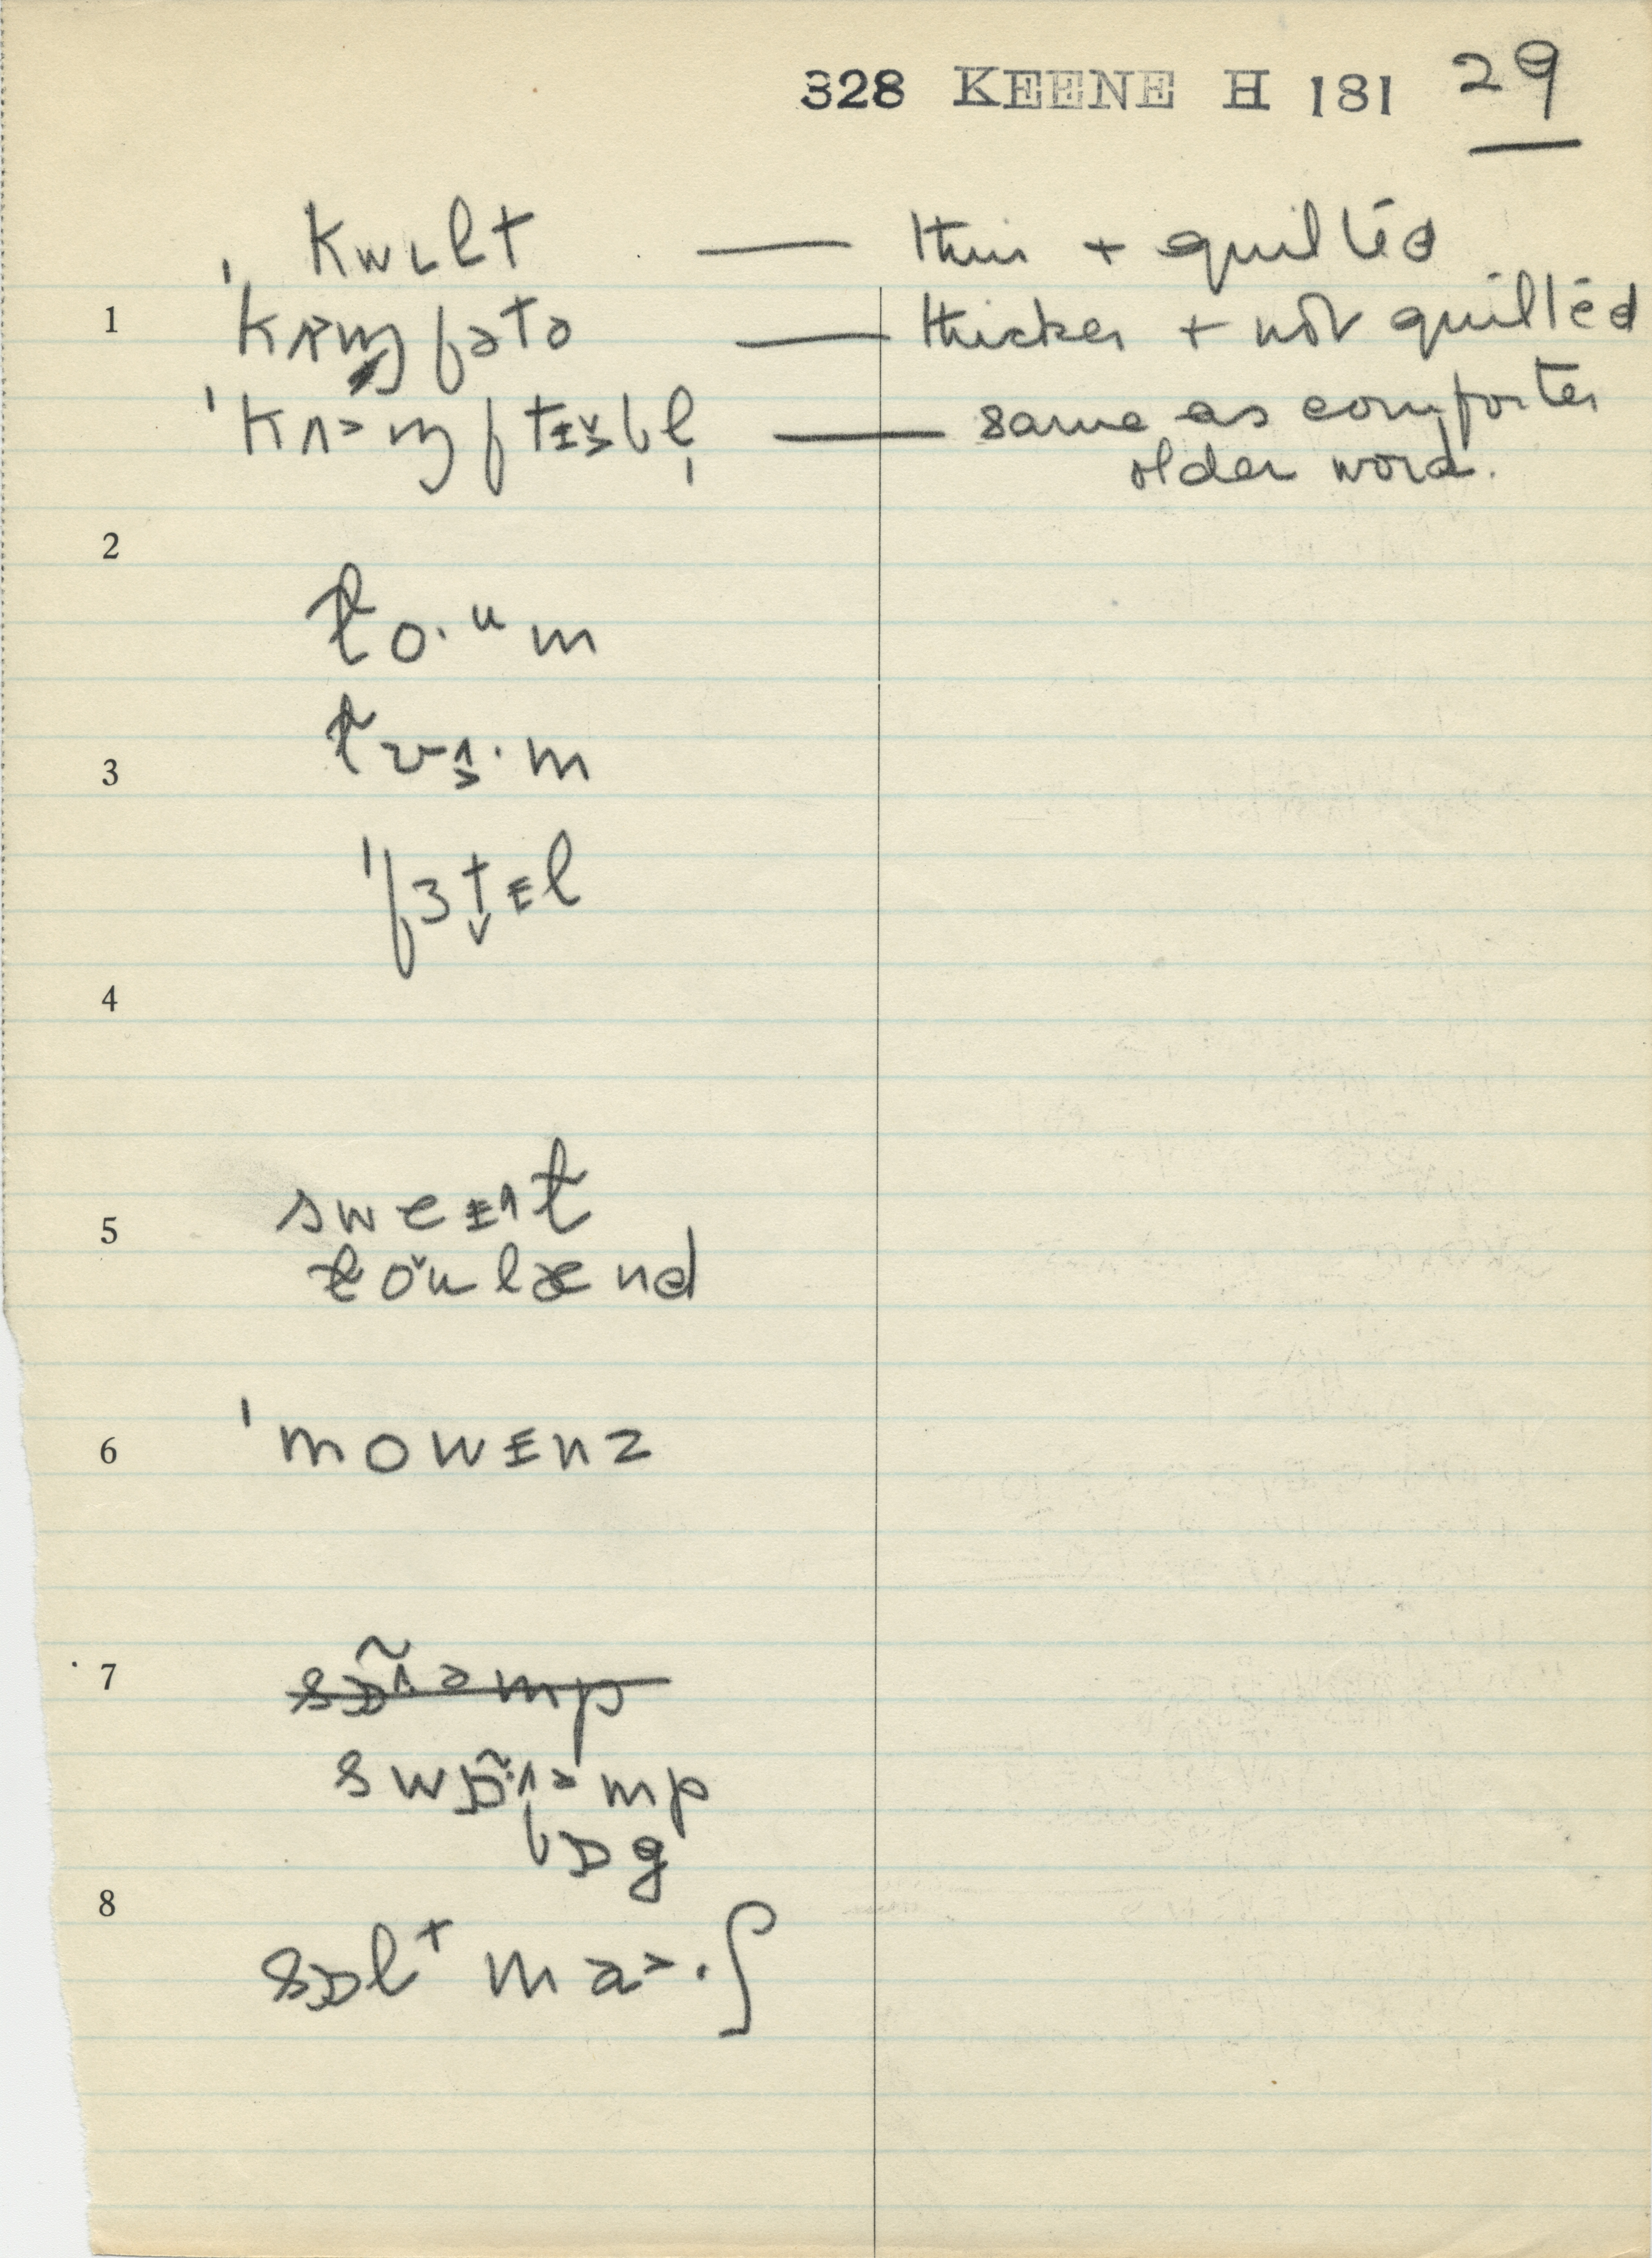 328 KEENE H 181 29
kwɩlt — thin + quilted
1 ˈkʌɱfətə — thicker + not quilted
ˈkʌ˃ɱftɨ̞̆bl̩ — same as comforter
older word.
2
lo·ᵘm
3 lʊʌ̞·m
ˈfɜt̬ɨl
4
5 sweɨʌl
lŏulænd
6 ˈmowɨnz
7 s̶ɒ̶̃ʌ̶˃̶m̶p̶
swɒ̃·ʌ˃mp
bɒg
8
sɒlᵗ ma˃·ʃ